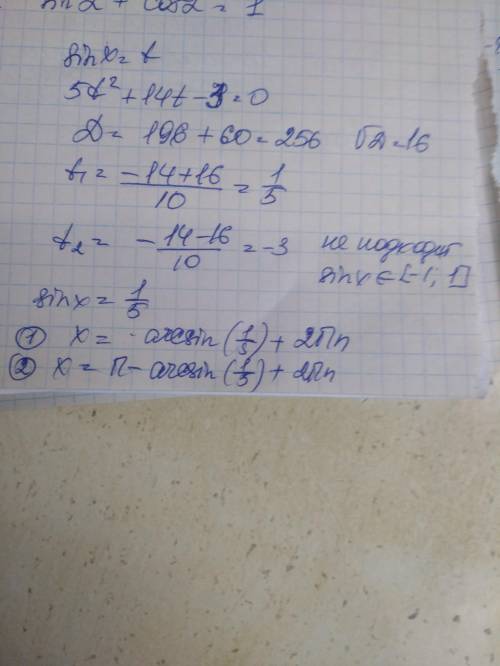 sin²α + cos²α = 1
sinx = t
5t² + 14t - 3 = 0
D = 196 + 60 = 256 √D = 16
t₁ = \frac{-14+16}{10} = \frac{1}{5}
t₂ = \frac{-14-16}{10} = -3 не подходит
sinx ∈ [-1; 1]
sinx = \frac{1}{5}
① x = arcsin(\frac{1}{5}) + 2πn
② x = π - arcsin(\frac{1}{5}) + 2πn